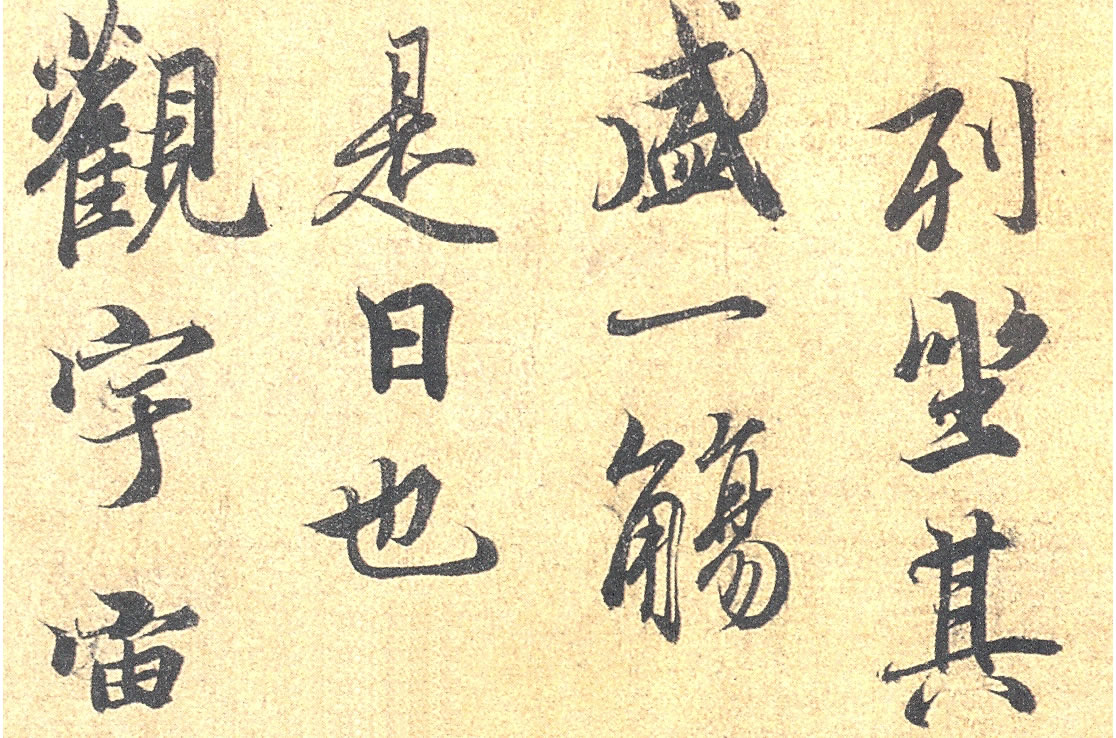 列坐其
盛一觴
是日也
觀宇宙